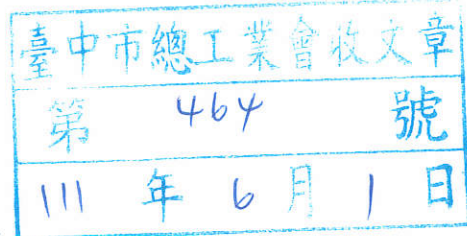 臺中市總工業會收文章
第 464 號
111 年 6 月 1 日